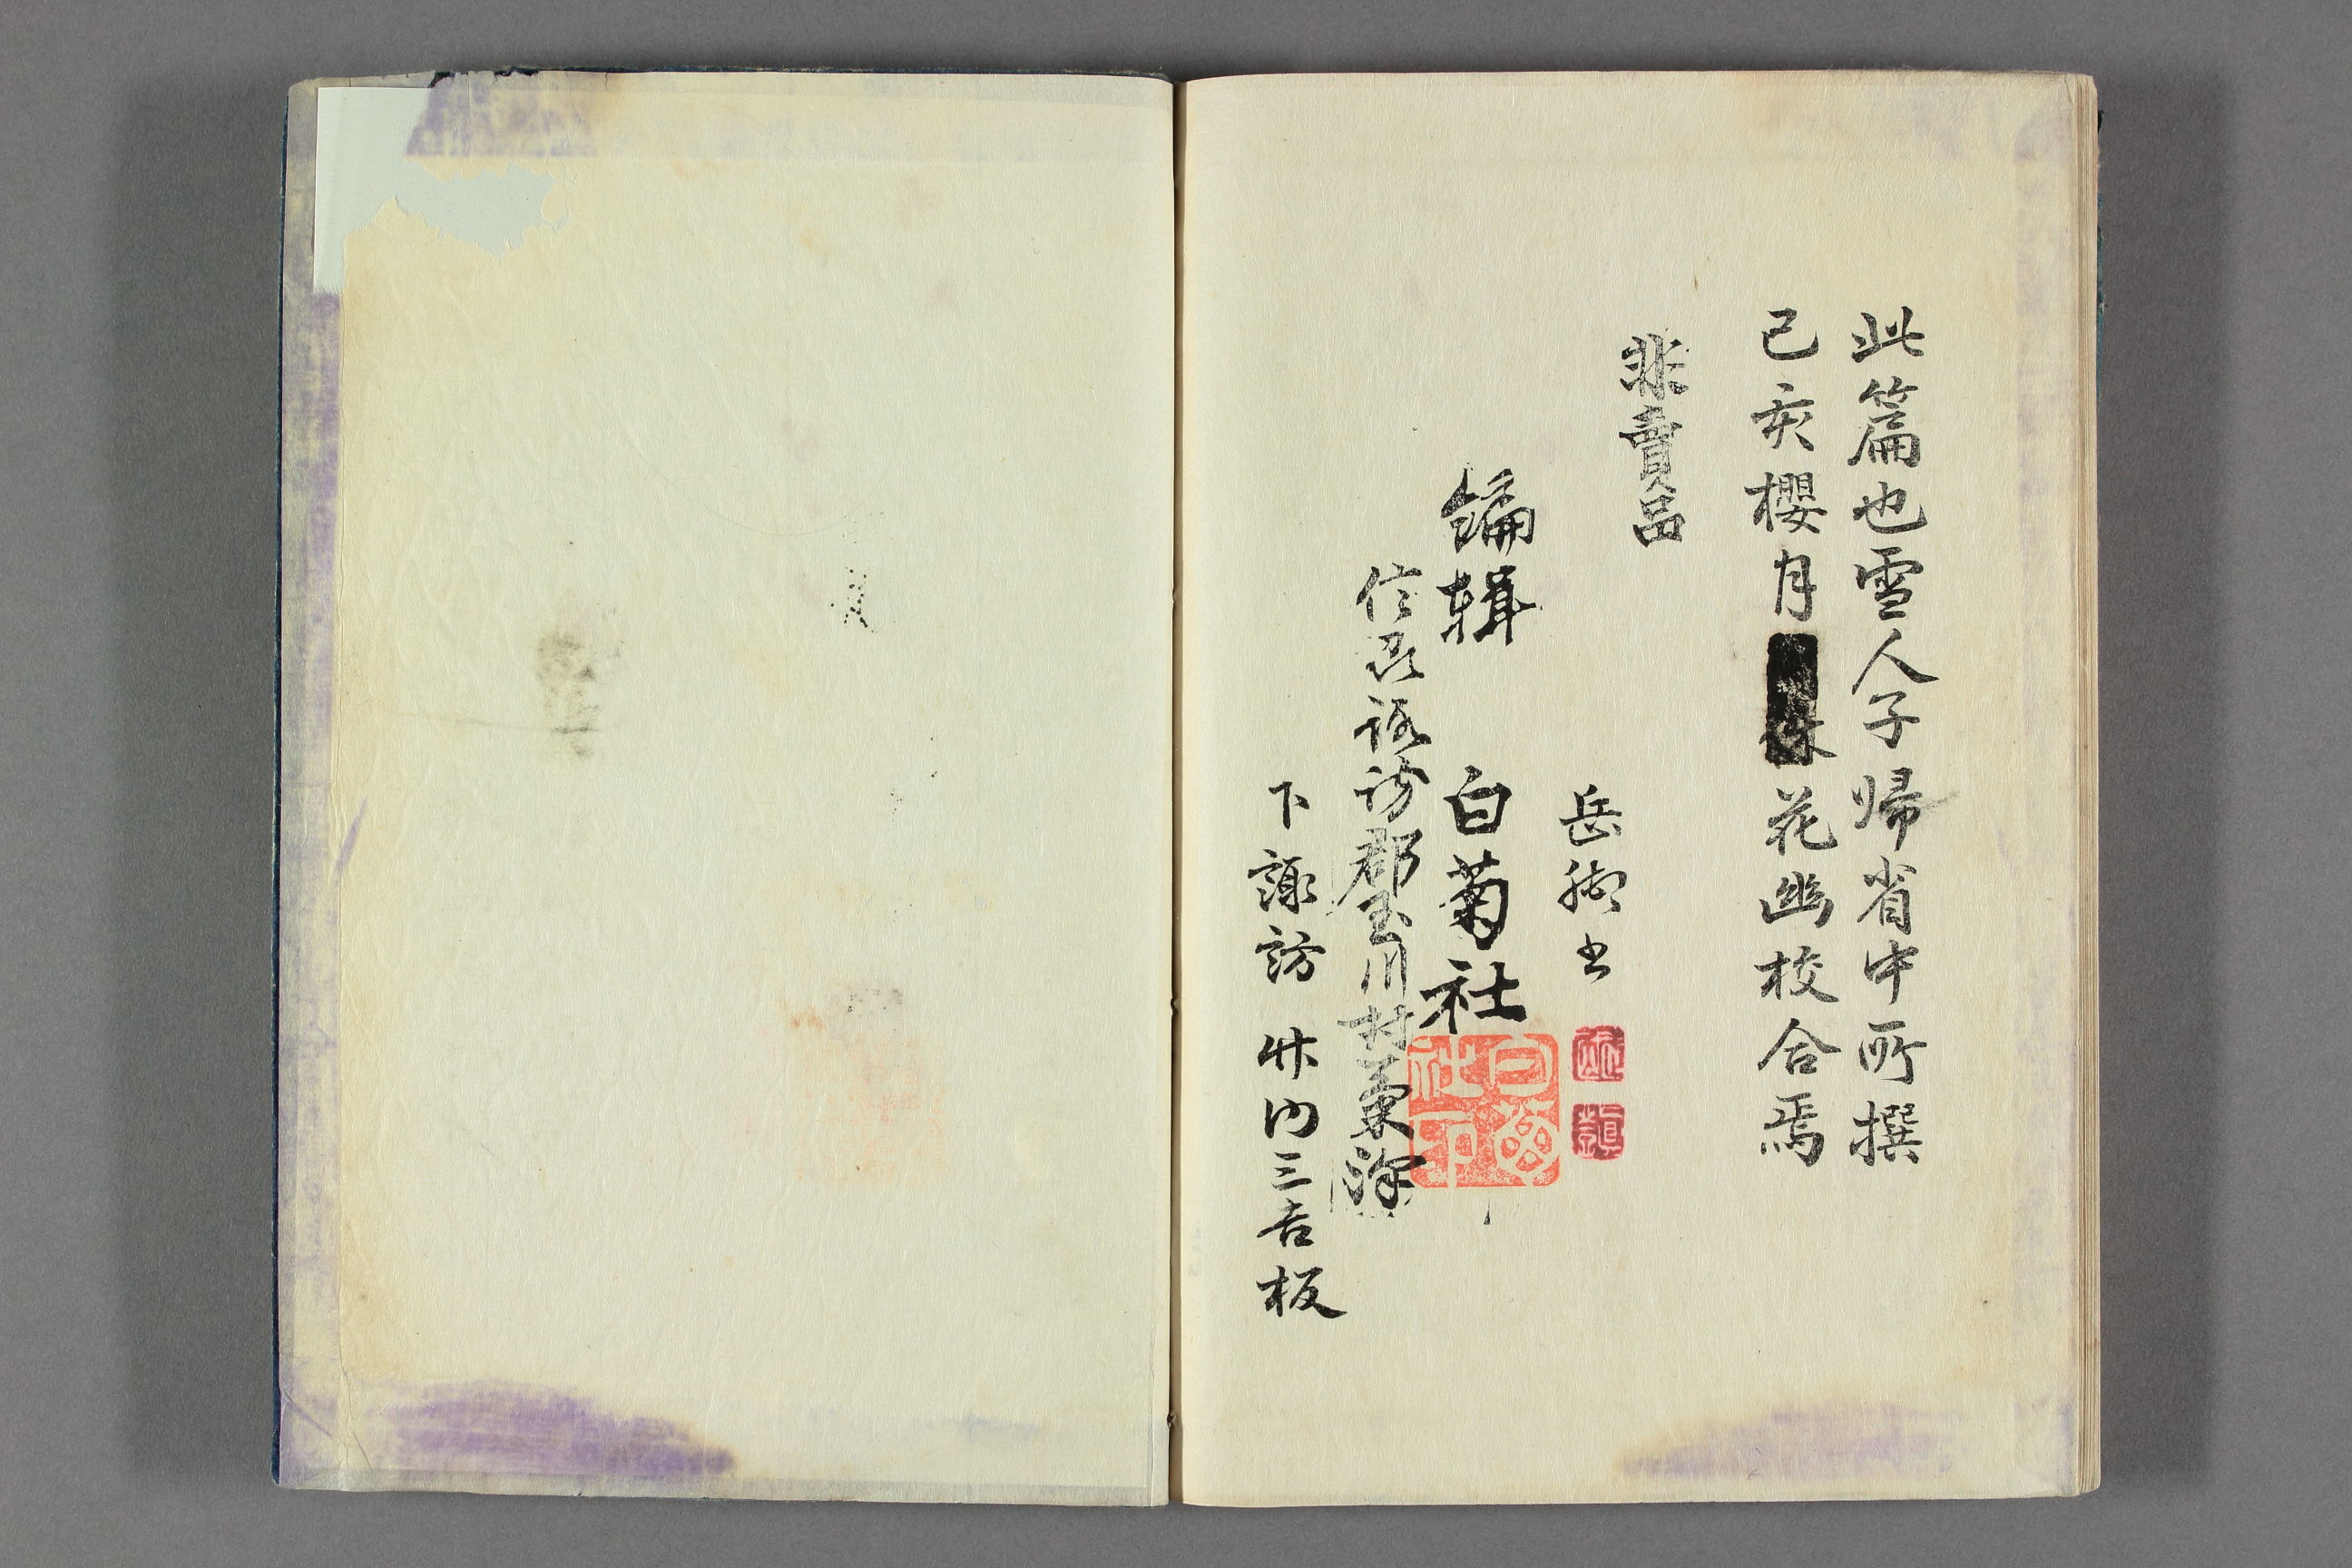 此篇也雪人子帰省中所撰
己亥櫻月花幽校合焉
非賣品
岳脚書
編輯 白菊社
信品諏訪郡玉川村粟澤
下諏訪 竹内三吉板
白菊社印